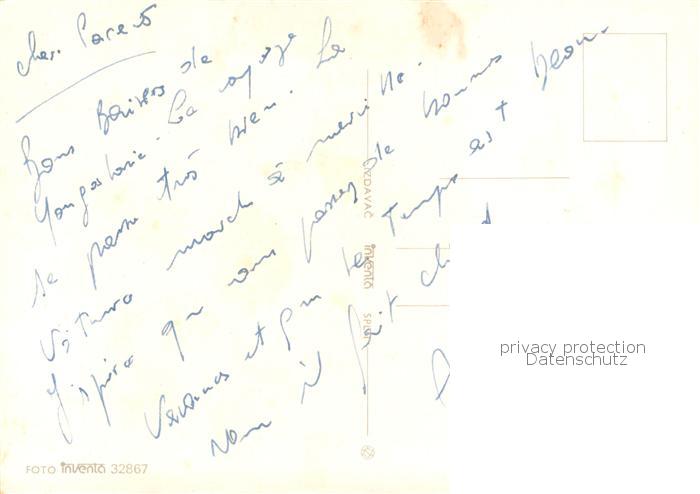 Cher Parents
Bons Baisers de
Yougoslavie. Le voyage
se passe très bien. La
voiture marche à merveille.
J'espère que vous passez de bonnes
vacances et que le temps est beau.
Nous il fait ch
IZDAVAČ
inventa
SPLIT
privacy protection
Datenschutz
FOTO inventa 32867